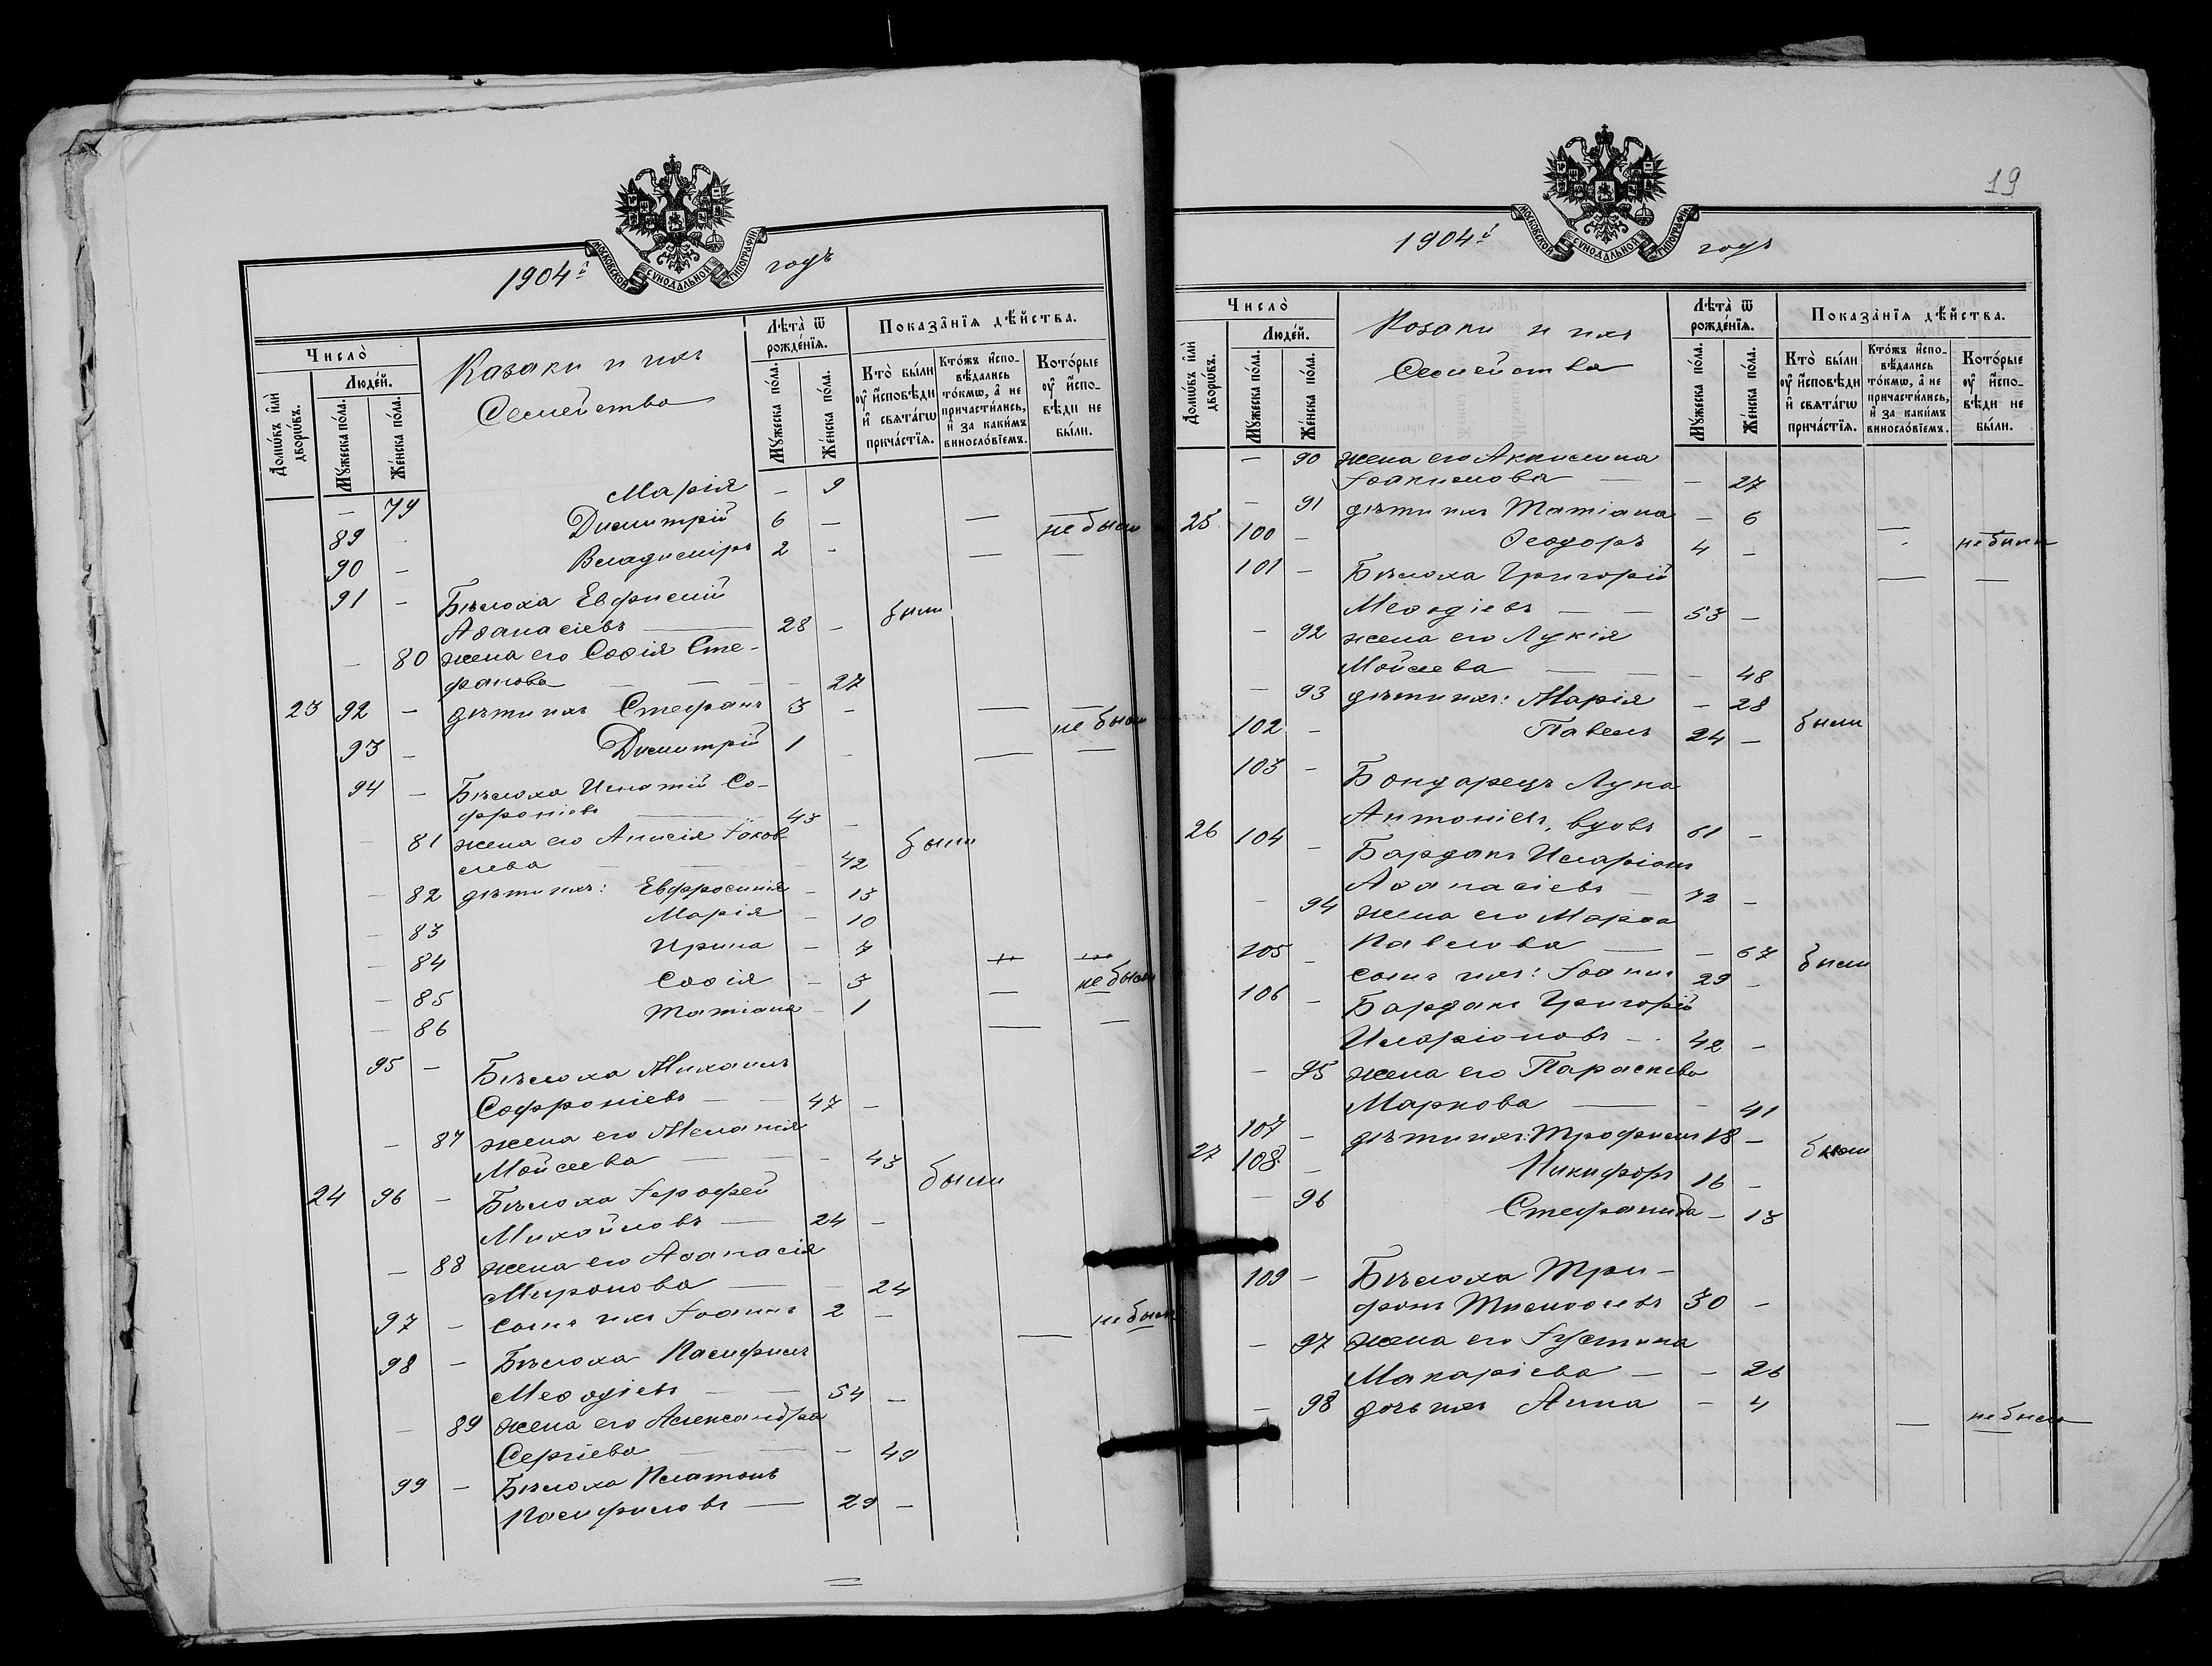 МОСКОВСКОЙ СѴНОДАЛЬНОЙ ТИПОГРАФІИ
1904й годъ
Число̀
Людéй.
Домѡ́въ и҆лѝ дворѡ́въ.
Мꙋ́жеска по́ла.
Же́нска по́ла.
Казаки и ихъ
Семейства
Лѣ́та ѿ рожде́нїѧ.
Мꙋ́жеска по́ла.
Же́нска по́ла.
Показа̑нїѧ дѣ́йства.
Кто̀ бы́ли ᲂу҆ и҆́сповѣди и҆ свѧта́гѡ прича́стїѧ.
Кто́жъ и҆сповѣ́дались то́кмѡ, а҆ не причасти́лись, и҆ за каки́мъ винослóвїемъ.
Кото́рые ᲂу҆ и҆́сповѣди не бы́ли.
— 79 Марія — 9
89 - Димитрій 6 — — не были
90 - Владиміръ 2 - — —
91 - Бѣлоха Евфимій
Аѳанасіевъ — 28 - были
— 80 жена его Софія Сте-
фанова — — — 27
23 92 - дѣти ихъ Стефанъ 3 - — не были
93 - Димитрій 1 - — —
94 - Бѣлоха Игнатій Со-
фроніевъ — 43 -
— 81 жена его Анисія Іаков
лева — — 42 были
— 82 дѣти ихъ: Евфросинія — 13
— 83 Марія — 10
— 84 Ирина — 7
— 85 Софія — 3 — не были
— 86 Татіана — 1 — —
95 - Бѣлоха Михаилъ
Софроніевъ — 47 -
— 87 жена его Меланія
Мойсеева — — 43 были
24 96 - Бѣлоха Іерофей
Михайловъ — 24 -
— 88 жена его Аѳанасія
Миронова — — 24
97 - сынъ ихъ Іоаннъ 2 — — не были
98 - Бѣлоха Памфилъ
Меѳодіевъ — 54 —
— 89 жена его Александра
Сергіева — — 49
99 - Бѣлоха Платонъ
Памфиловъ — 29 -
19
МОСКОВСКОЙ СѴНОДАЛЬНОЙ ТИПОГРАФІИ
1904й годъ
Число̀
Людéй.
Домѡ́въ и҆лѝ дворѡ́въ.
Мꙋ́жеска по́ла.
Же́нска по́ла.
Козаки и ихъ
Семейства
Лѣ́та ѿ рожде́нїѧ.
Мꙋ́жеска по́ла.
Же́нска по́ла.
Показа̑нїѧ дѣ́йства.
Кто̀ бы́ли ᲂу҆ и҆́сповѣди и҆ свѧта́гѡ прича́стїѧ.
Кто́жъ и҆сповѣ́дались то́кмѡ, а҆ не причасти́лись, и҆ за каки́мъ винослóвїемъ.
Кото́рые ᲂу҆ и҆́сповѣди не бы́ли.
— 90 жена его Акилина
Іоакимова — — 27
— 91 дѣти ихъ Татіана — 6
25 100 - Ѳеодоръ 4 - — не были
101 - Бѣлоха Григорій
Меѳодіевъ — — 53 —
— 92 жена его Лукія
Мойсеева — — 48
— 93 дѣти ихъ: Марія — 28
102 - Павелъ 24 — были
103 - Бондарецъ Лука
Антоніевъ, вдовъ 61 -
26 104 - Барданъ Иларіонъ
Аѳанасіевъ — 72 -
— 94 жена его Марѳа
Павлова — — 67 были
105 - сынъ ихъ: Іоаннъ 29 -
106 - Барданъ Григорій
Иларіоновъ — 42 -
— 95 жена его Параскева
Маркова — — 41
107 - дѣти ихъ: Трофимъ 18 — были
27 108 - Никифоръ 16 -
— 96 Стефанида — 13
109 - Бѣлоха Три-
фонъ Тимоѳеевъ 30 -
— 97 жена его Іустина
Макаріева — — 26
— 98 дочь ихъ Анна — 4 — не были